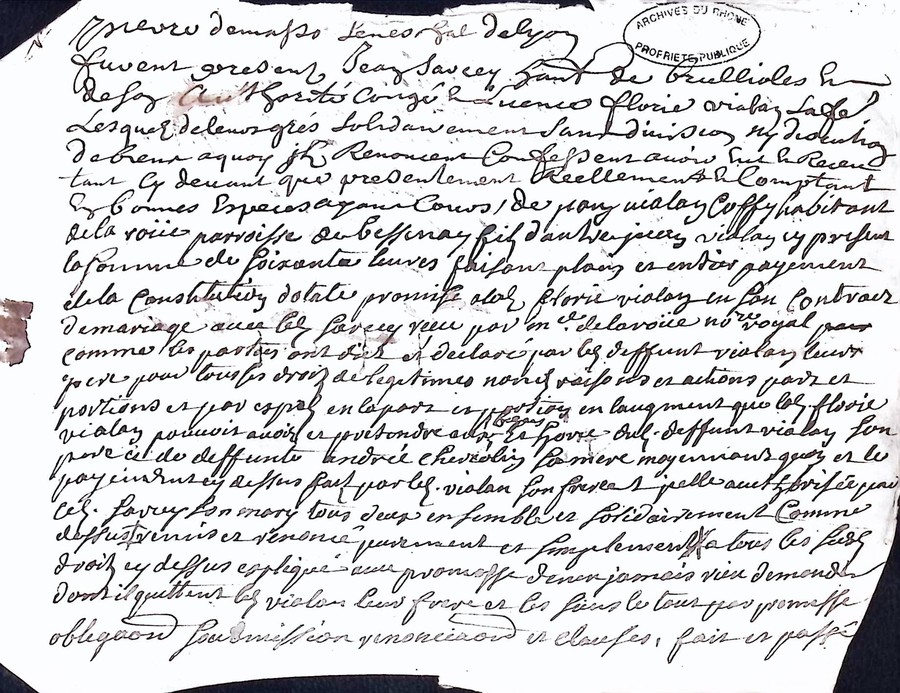 pierre demasso seneschal de lyon
ARCHIVES DU RHONE
PROPRIETE PUBLIQUE
furent present Jean Sarcey hant de brullioles &
de son authorité congé & licence florie vialan sa fe
Lesquelz de leurs grés solidairement sans division ny discution
de biens a quoy ilz Renoncent Confessent avoir heu & Receu
tant cy devant que presentement Reellement & Comptant
en bonnes Especes ayant Cours, de jany vialan Coffy habitant
de la roüe parroisse de bessenay filz d'autre vialan cy present
la somme de soixante livres faisant plain et entier payement
de la Constitution dotale promise a lad florie vialan en son Contract
de mariage avec led sarcey receu par me delaroüe nore royal
comme les parties ont dict et declaré par led deffunt vialan leur
pere pour tous les droitz de legitimes noms raisons et actions partz et
portions et par expres en la part et portion en laugment que lad florie
vialan pouvoit avoir et pretendre aux biens et hoirie dud. deffunt vialan son
pere et de deffunte andrée son mere moyennant quoy et le
payement cy dessus fait par led. vialan son frere & jcelle authorisée par
led. sarcey son mary tous deux ensemble et solidairement Comme
dessus remis et renoncé purement et simplement a tous les susd
droitz cy dessus expliqué avec promesse d'en jamais rien demander
dont ilz quittent led vialan leur frere et les siens le tout par promesse
obligaon soubmission renonciaon et clauses, fait et passé